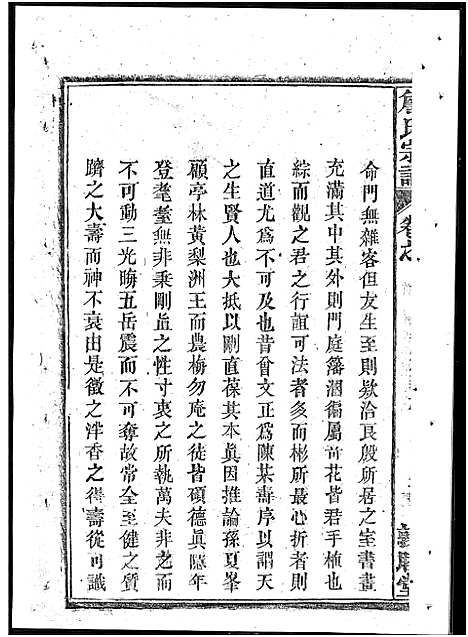 詹氏宗譜
卷之
命門無雜客但友生至則欵洽艮殷所居之室書畫
充滿其中其外則門庭藩溷徧屬奇花皆君手植也
綜而觀之君之行誼可法者多而彬所最心折者則
直道尤爲不可及也昔曾文正爲陳某壽序以謂天
之生賢人也大抵以剛直葆其本眞因推論孫夏峯
顧亭林黃梨洲王而農梅勿庵之徒皆碩德眞隱年
登耄耋無非秉剛直之性寸衷之所執萬夫非之而
不可動三光晦五岳震而不可奪故常全至健之質
躋之大壽而神不衰由是徵之泮香之得壽從可識